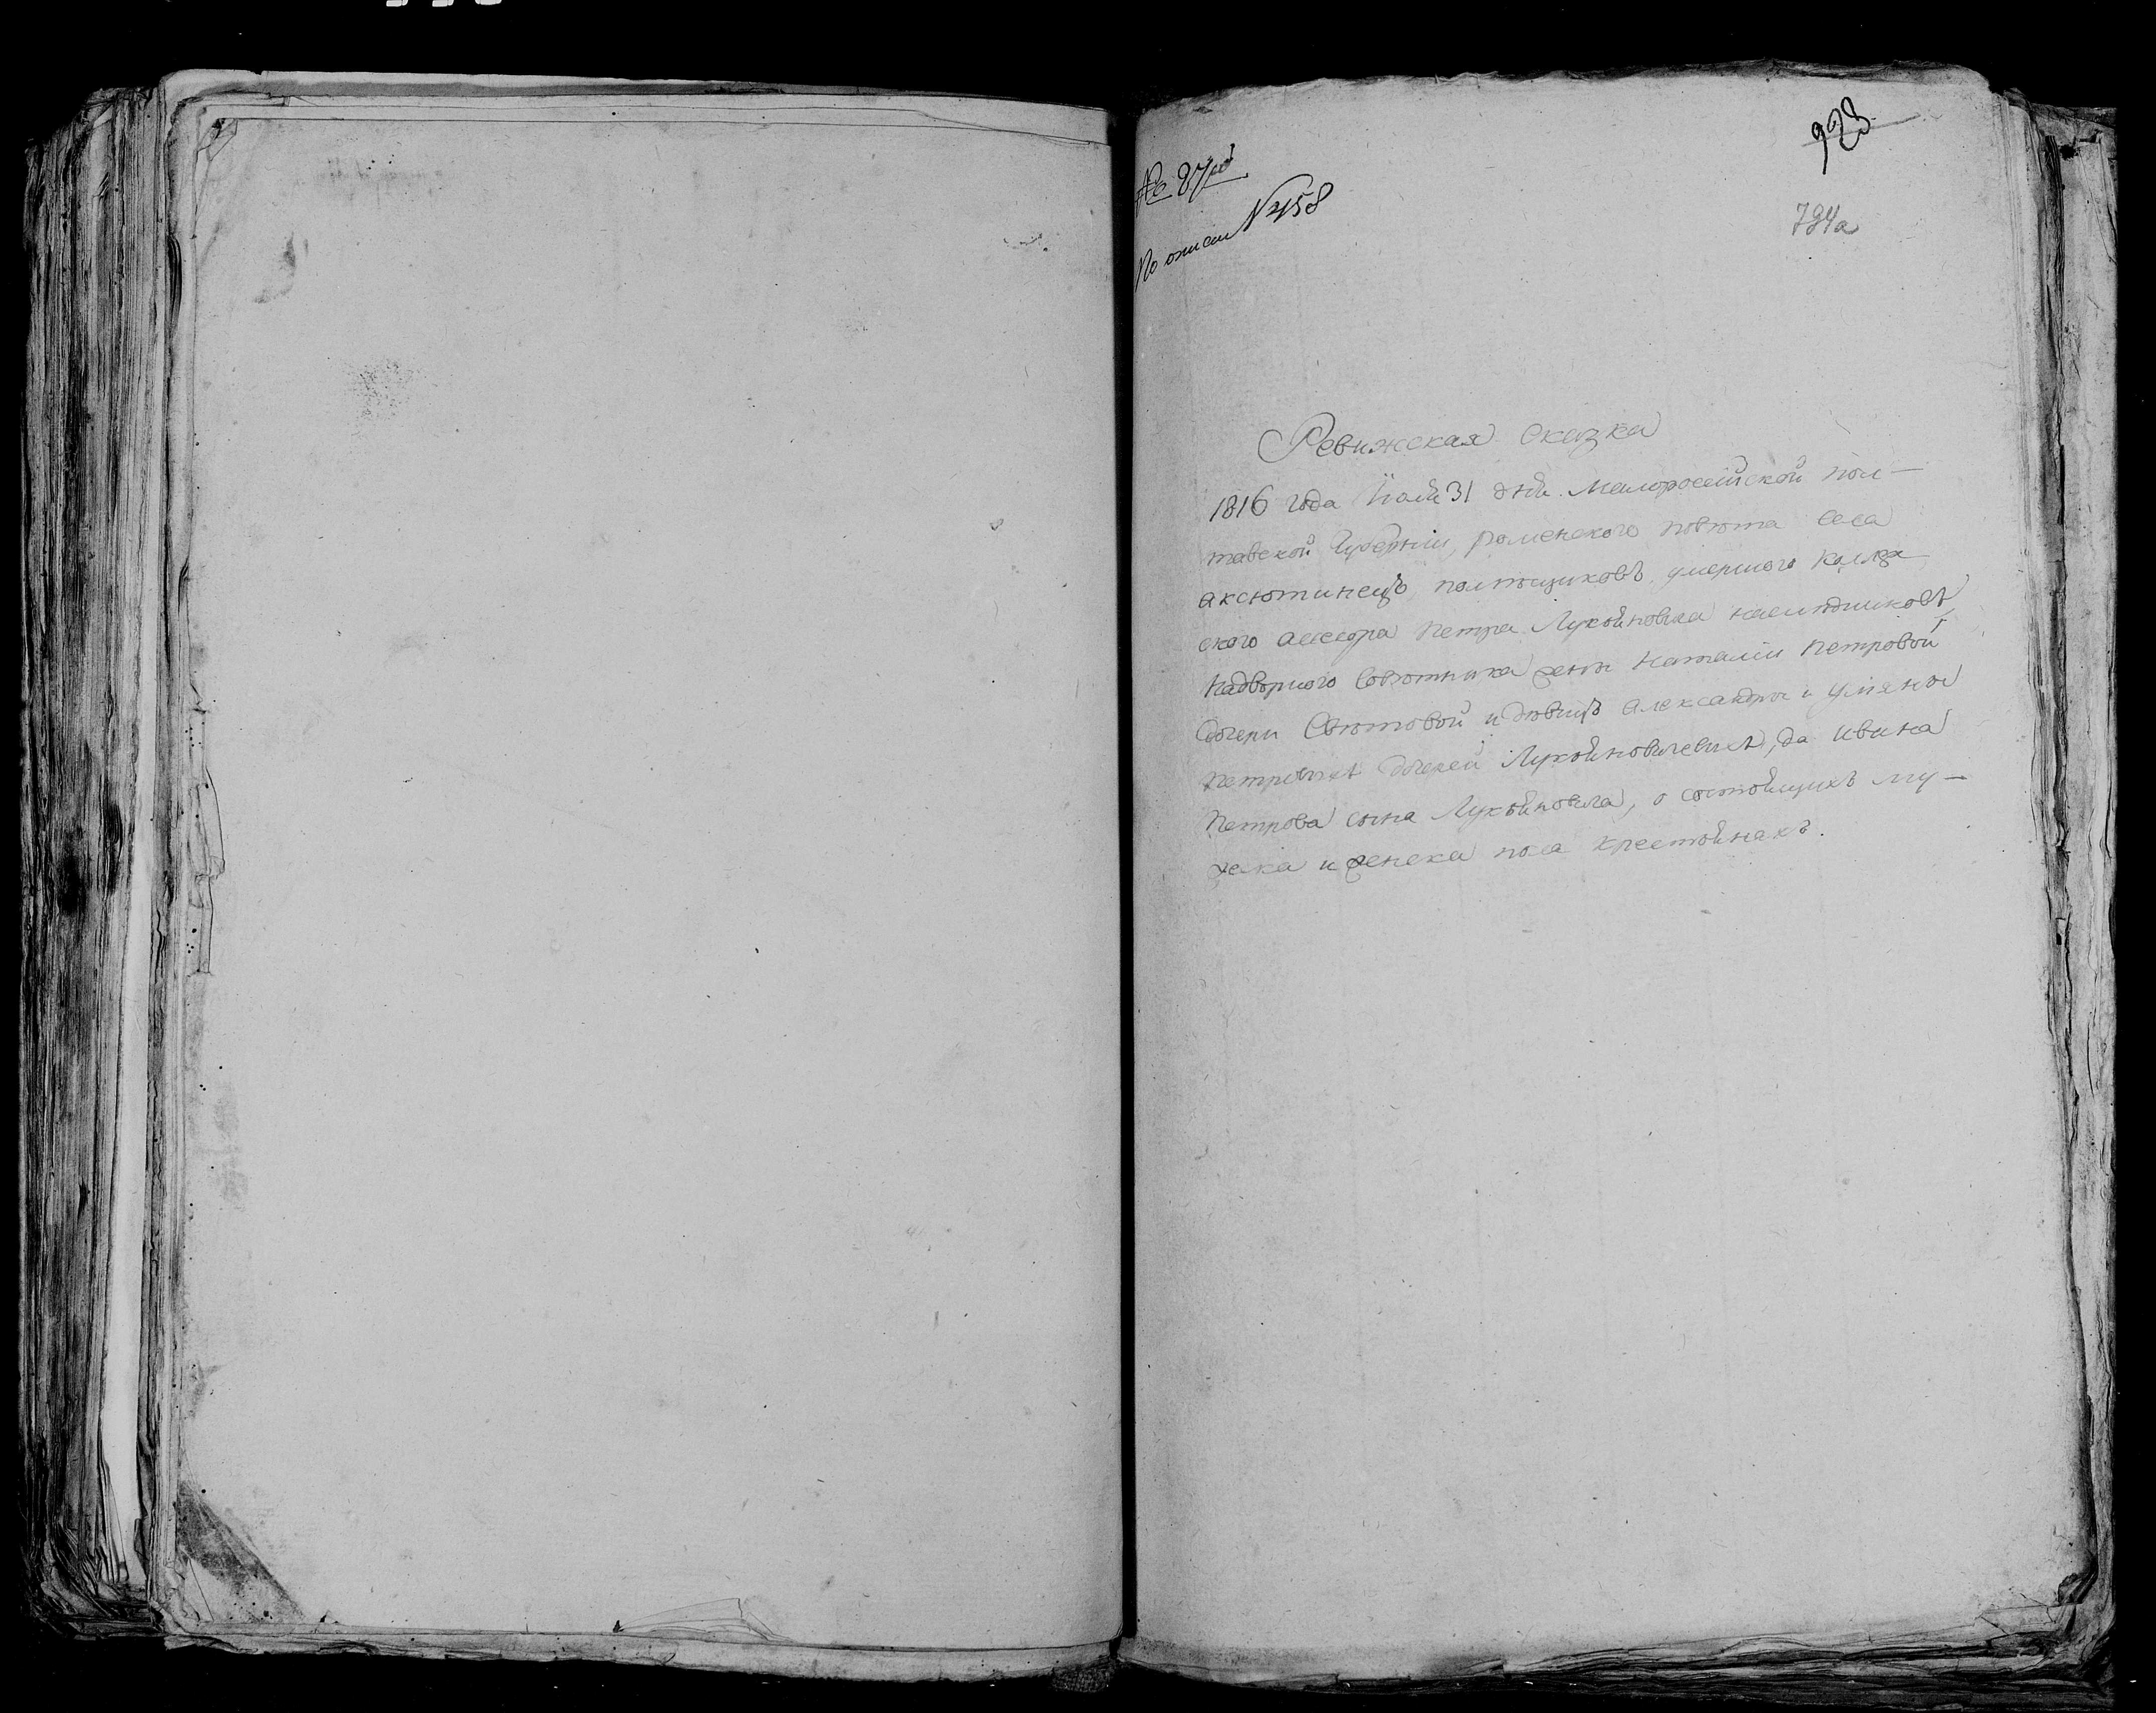 923
794а
По описи №458
Ревижская сказка
1816 года Июля 31 дня. Малоросийской пол-
тавской Губернии, роменского повѣта села
аксютинецъ, помѣщиковъ умершого коллеж
ского асесора Петра Лукяновича наслѣдниковъ,
Надворного Совѣтника жены Наталии Петровой
дочери Свѣтовой и дѣвицъ Александры и
Петровыхъ дочерей Лукяновичевыхъ, да Ивана
Петрова сына Лукяновича, о состоящихъ му-
жеска и женска пола крестянахъ.